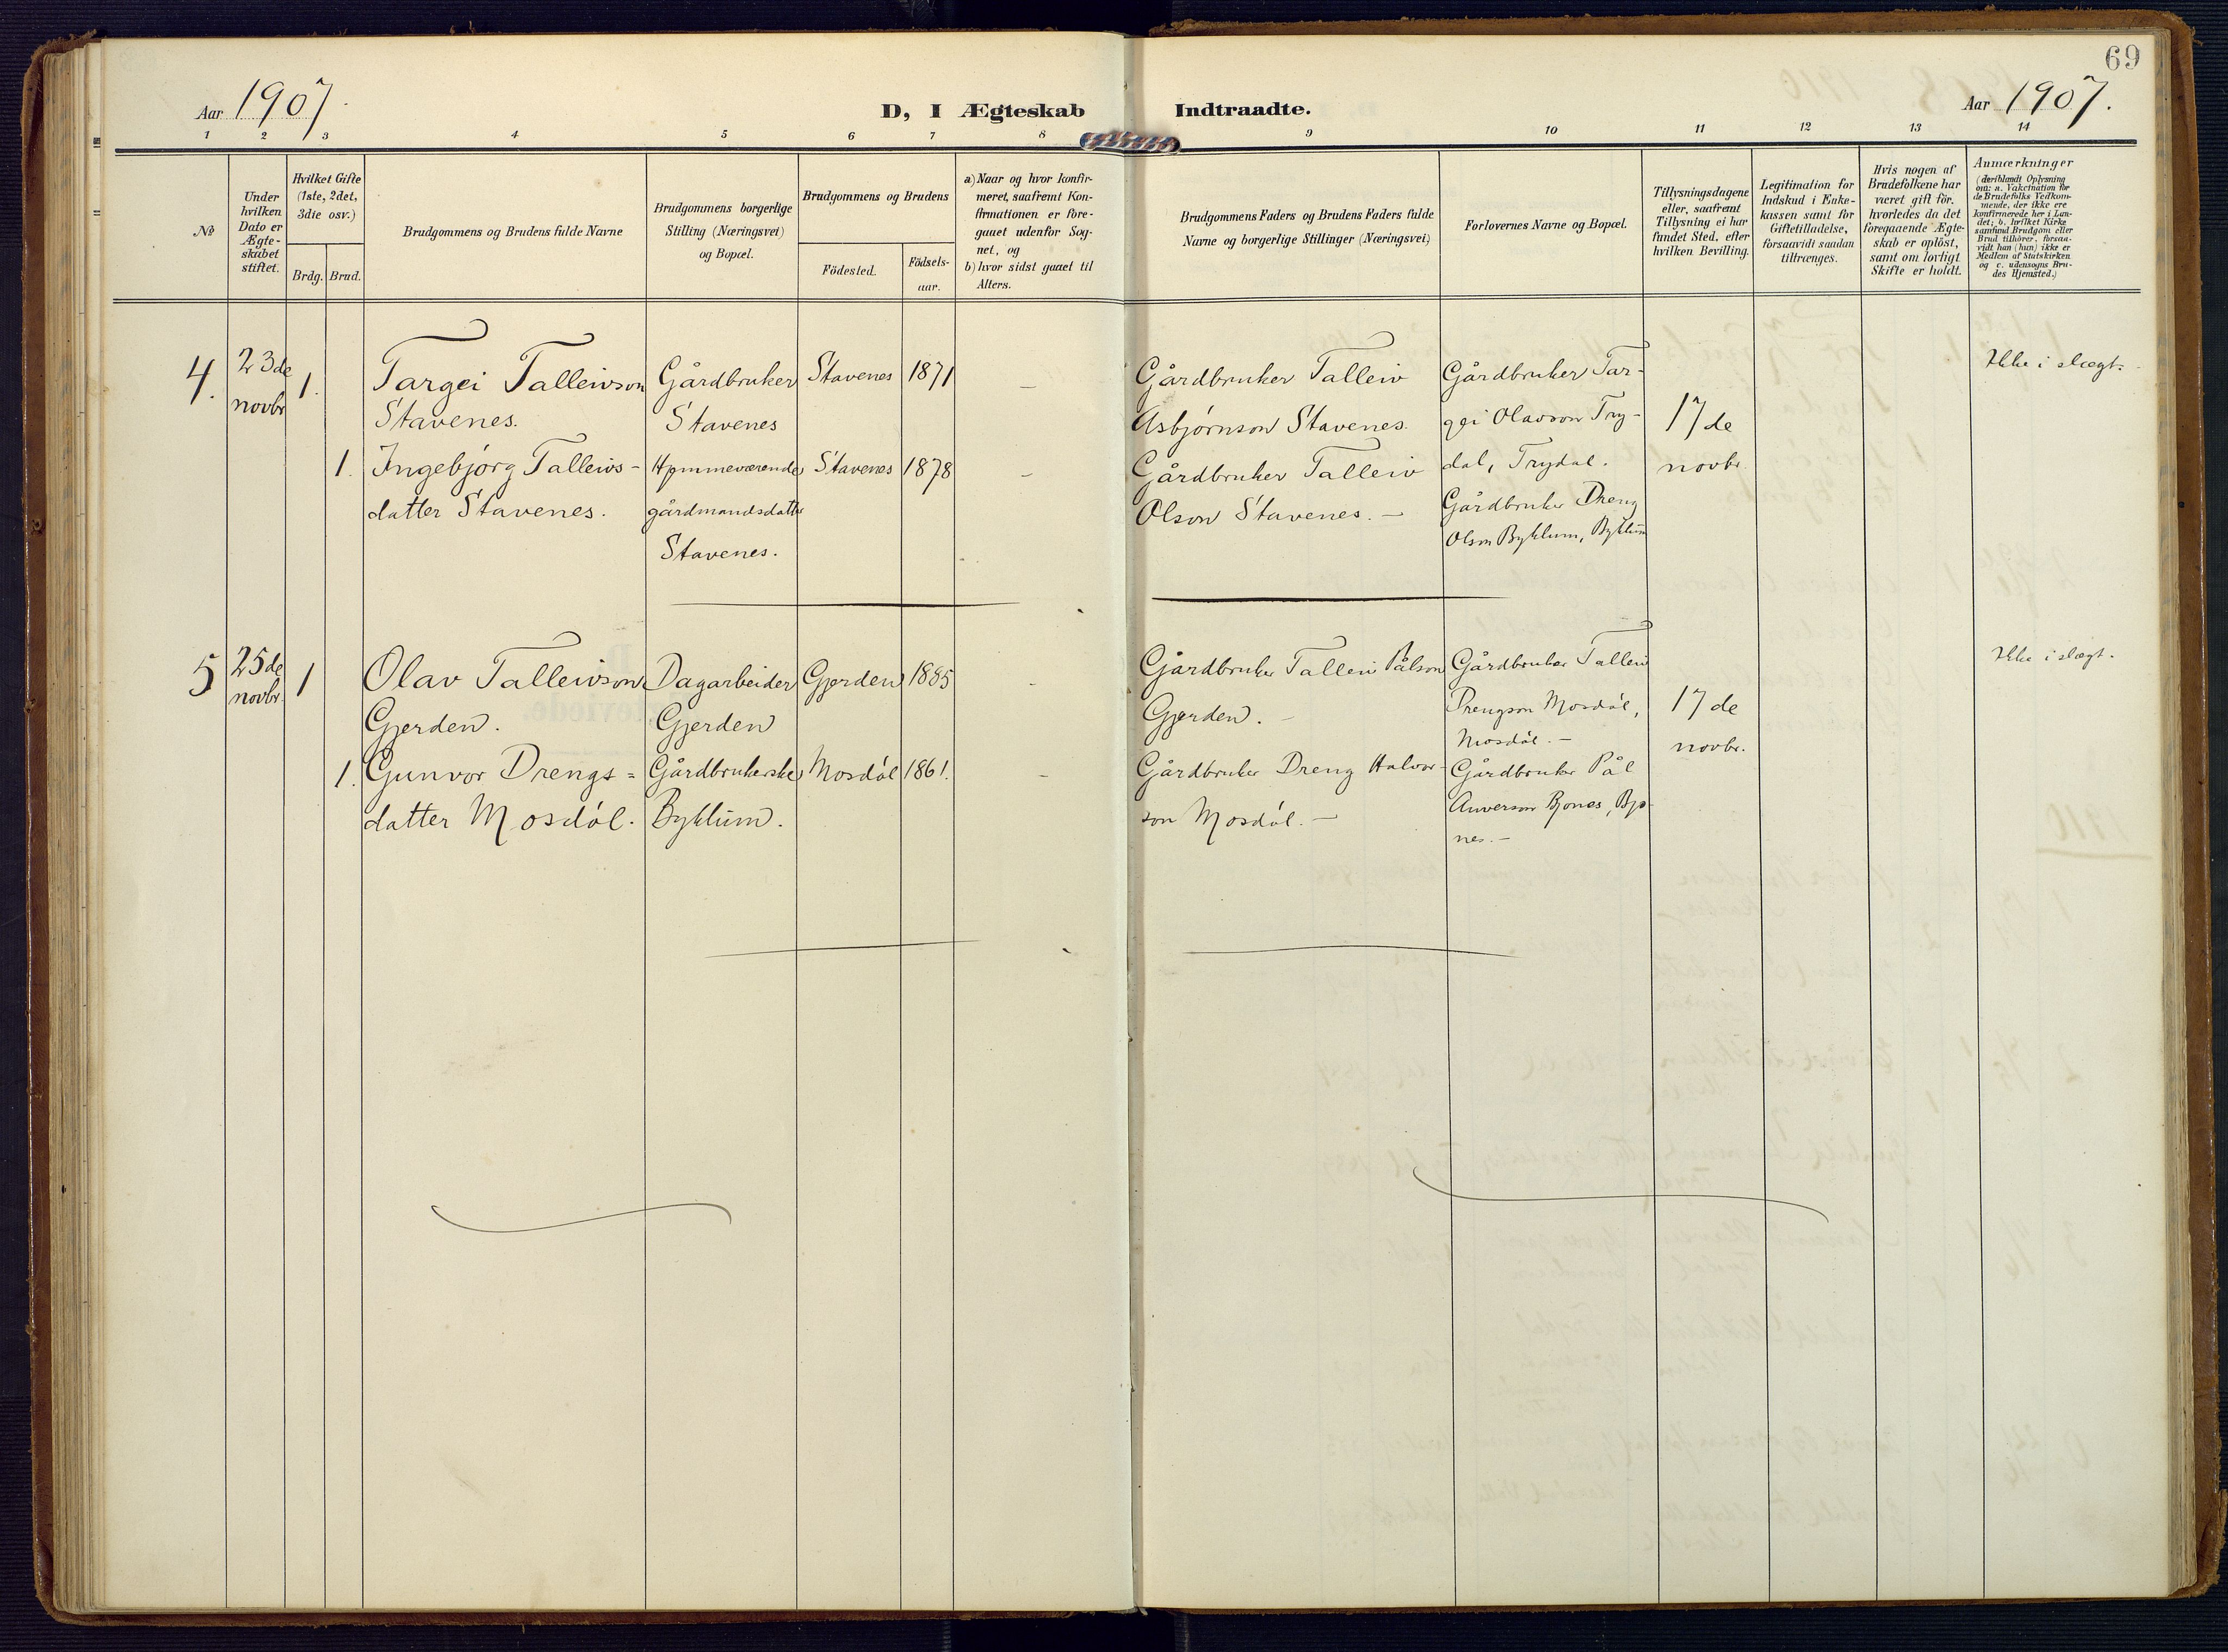 69
Aar 1907.
D, I Ægteskab Indtraadte.
Aar 1907.
1 2 3 4 5 6 7 8 9 10 11 12 13 14
No
Under hvilken Dato er Ægte-skabet stiftet.
Hvilket Gifte (1ste, 2det, 3die osv.)
Brdg. Brud.
Brudgommens og Brudens fulde Navne
Brudgommens borgerlige Stilling (Næringsvei) og Bopæl.
Brudgommens og Brudens
Födested.
Födsels-aar.
a) Naar og hvor konfir-
meret, saafremt Kon-
firmationen er fore-
gaaet udenfor Sog-
net, og
b) hvor sidst gaaet til
Alters.
Brudgommens Faders og Brudens Faders fulde
Navne og borgerlige Stillinger (Næringsvei)
Forlovernes Navne og Bopæl.
Tillysningsdagene
eller, saafremt
Tillysning ei har
fundet Sted, efter
hvilken Bevilling.
Legitimation for
Indskud i Enke-
kassen samt for
Giftetilladelse,
forsaavidt saadan
tiltrænges.
Hvis nogen af
Brudefolkene har
været gift för,
hvorledes da det
foregaaende Ægte-
skab er oplöst,
samt om lovligt
Skifte er holdt.
Anmærkninger
(deriblandt Oplysning
om: a. Vakcination for
de Brudefolks Vedkom-
mende, der ikke ere
konfirmerede her i Lan-
det; b. hvilket Kirke
samfund Brudgom eller
Brud tilhörer, forsaa-
vidt han (hun) ikke er
Medlem af Statskirken
og c. udensogns Bru-
des Hjemsted.)
4. 23de novbr 1.
Targei Talleivson
Stavenes.
Gårdbruker
Stavenes
Stavenes 1871 –
Gårdbruker Talleiv
Asbjørnson Stavenes.
Gårdbruker Tar-
gei Olavson Try-
dal, Trydal.
17de
novbr.
Ikke i slægt.
1. Ingebjørg Talleivs-
datter Stavenes.
Hjemmeværende
gårdmandsdatter
Stavenes.
Stavenes 1878 –
Gårdbruker Talleiv
Olson Stavenes. –
Gårdbruker Dreng
Olson Byklum, Byklum
5 25de novbr. 1
Olav Talleivson
Gjerden.
Dagarbeider
Gjerden
Gjerden 1885 -
Gårdbruker Talleiv Pålson
Gjerden. –
Gårdbruker Talleiv
Drengson Mosdøl,
Mosdøl. –
17de
novbr.
Ikke i slægt.
1. Gunvor Drengs =
datter Mosdøl.
Gårdbrukerske
Byklum.
Mosdøl 1861. –
Gårdbruker Dreng Halvor-
son Mosdøl. –
Gårdbruker Pål
Anverson Bjones, Bjo-
nes. –